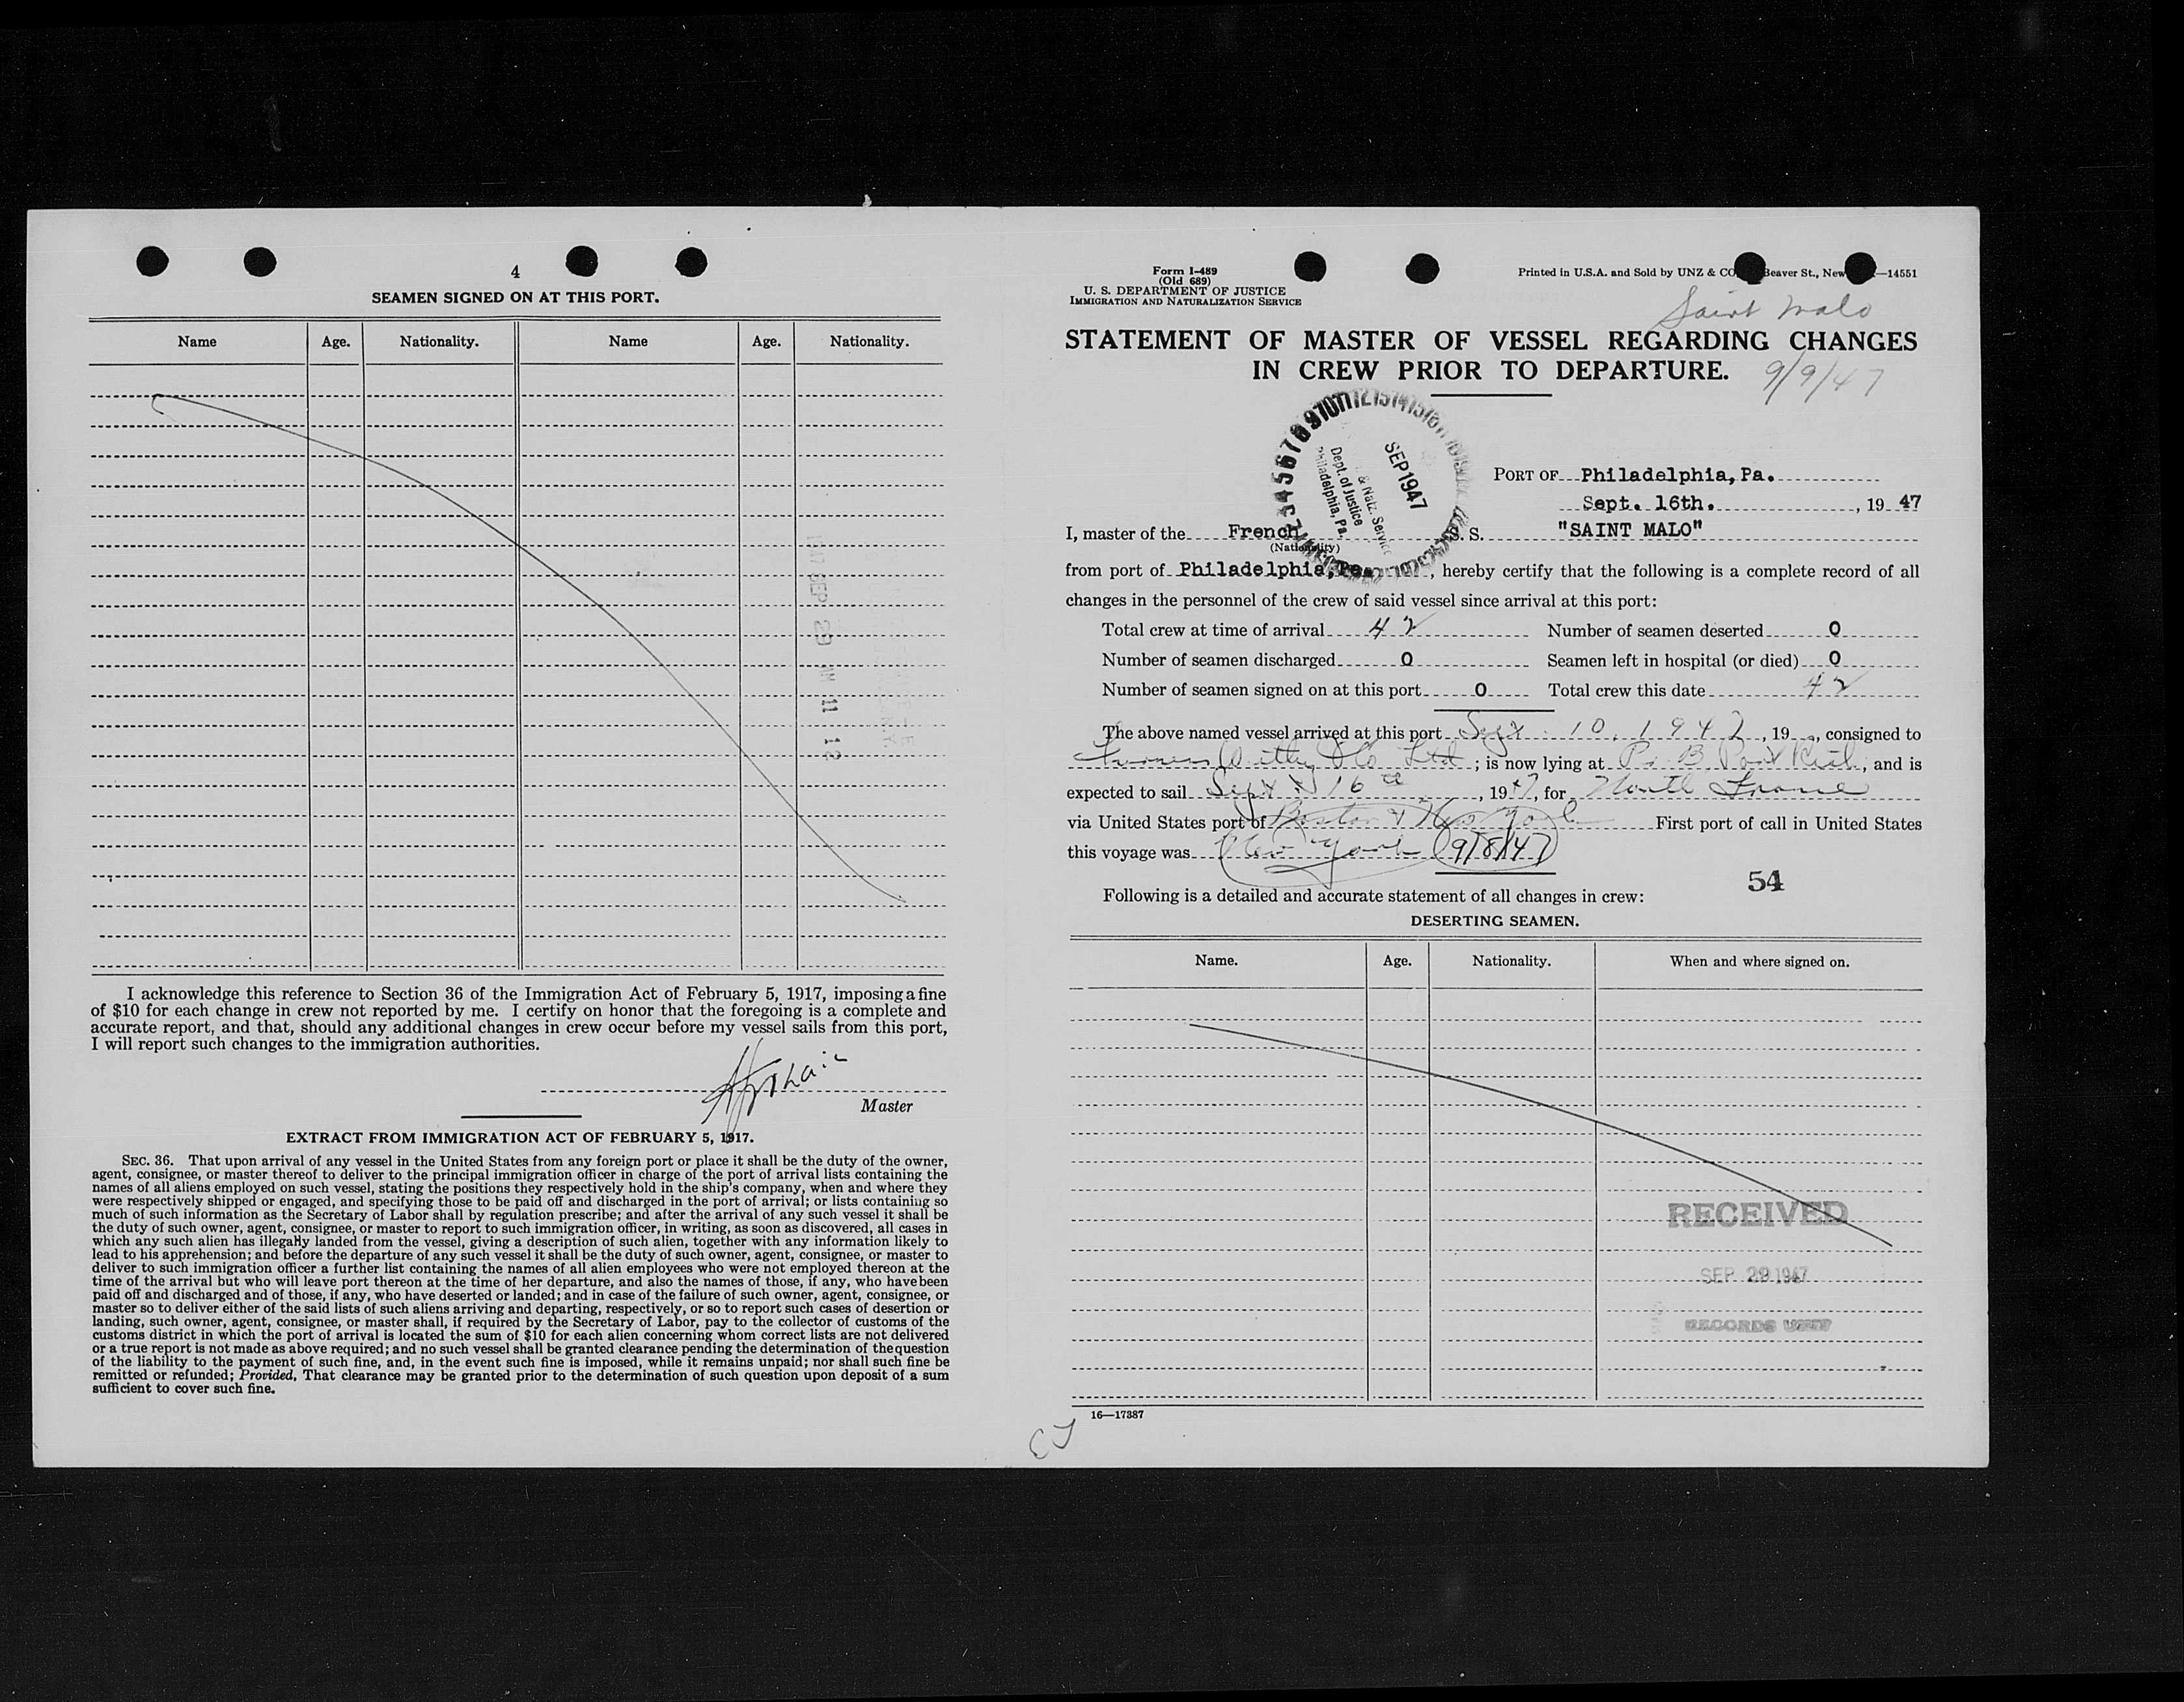 4
SEAMEN SIGNED ON AT THIS PORT.
Name Age. Nationality. Name Age. Nationality.
1947 SEP 29 AM 11 12
I acknowledge this reference to Section 36 of the Immigration Act of February 5, 1917, imposing a fine
of $10 for each change in crew not reported by me. I certify on honor that the foregoing is a complete and
accurate report, and that, should any additional changes in crew occur before my vessel sails from this port,
I will report such changes to the immigration authorities.
Master
EXTRACT FROM IMMIGRATION ACT OF FEBRUARY 5, 1917.
SEC. 36. That upon arrival of any vessel in the United States from any foreign port or place it shall be the duty of the owner,
agent, consignee, or master thereof to deliver to the principal immigration officer in charge of the port of arrival lists containing the
names of all aliens employed on such vessel, stating the positions they respectively hold in the ship's company, when and where they
were respectively shipped or engaged, and specifying those to be paid off and discharged in the port of arrival; or lists containing so
much of such information as the Secretary of Labor shall by regulation prescribe; and after the arrival of any such vessel it shall be
the duty of such owner, agent, consignee, or master to report to such immigration officer, in writing, as soon as discovered, all cases in
which any such alien has illegally landed from the vessel, giving a description of such alien, together with any information likely to
lead to his apprehension; and before the departure of any such vessel it shall be the duty of such owner, agent, consignee, or master to
deliver to such immigration officer a further list containing the names of all alien employees who were not employed thereon at the
time of the arrival but who will leave port thereon at the time of her departure, and also the names of those, if any, who have been
paid off and discharged and of those, if any, who have deserted or landed; and in case of the failure of such owner, agent, consignee, or
master so to deliver either of the said lists of such aliens arriving and departing, respectively, or so to report such cases of desertion or
landing, such owner, agent, consignee, or master shall, if required by the Secretary of Labor, pay to the collector of customs of the
customs district in which the port of arrival is located the sum of $10 for each alien concerning whom correct lists are not delivered
or a true report is not made as above required; and no such vessel shall be granted clearance pending the determination of the question
of the liability to the payment of such fine, and, in the event such fine is imposed, while it remains unpaid; nor shall such fine be
remitted or refunded; Provided, That clearance may be granted prior to the determination of such question upon deposit of a sum
sufficient to cover such fine.
Form I-489
(Old 689)
U. S. DEPARTMENT OF JUSTICE
IMMIGRATION AND NATURALIZATION SERVICE
Printed in U.S.A. and Sold by UNZ & CO Beaver St., New —14551
Saint Malo
STATEMENT OF MASTER OF VESSEL REGARDING CHANGES
IN CREW PRIOR TO DEPARTURE.
9/9/47
SEP 1947
& Natz. Service
Dept. of Justice
Philadelphia, Pa.
PORT OF Philadelphia, Pa.
Sept. 16th. , 19 47
I, master of the French S. S. "SAINT MALO"
(Nationality)
from port of Philadelphia, Pa. , hereby certify that the following is a complete record of all
changes in the personnel of the crew of said vessel since arrival at this port:
Total crew at time of arrival 42 Number of seamen deserted 0
Number of seamen discharged 0 Seamen left in hospital (or died) 0
Number of seamen signed on at this port 0 Total crew this date 42
The above named vessel arrived at this port Sept 10, 1947, 19 , consigned to
Furness Withy & Co Ltd ; is now lying at Port Rich , and is
expected to sail Sept 16th , 1947, for North France
via United States port of Boston & New York First port of call in United States
this voyage was New York 9/8/47
54
Following is a detailed and accurate statement of all changes in crew:
DESERTING SEAMEN.
Name. Age. Nationality. When and where signed on.
RECEIVED
SEP 29 1947
RECORDS UNIT
16—17387